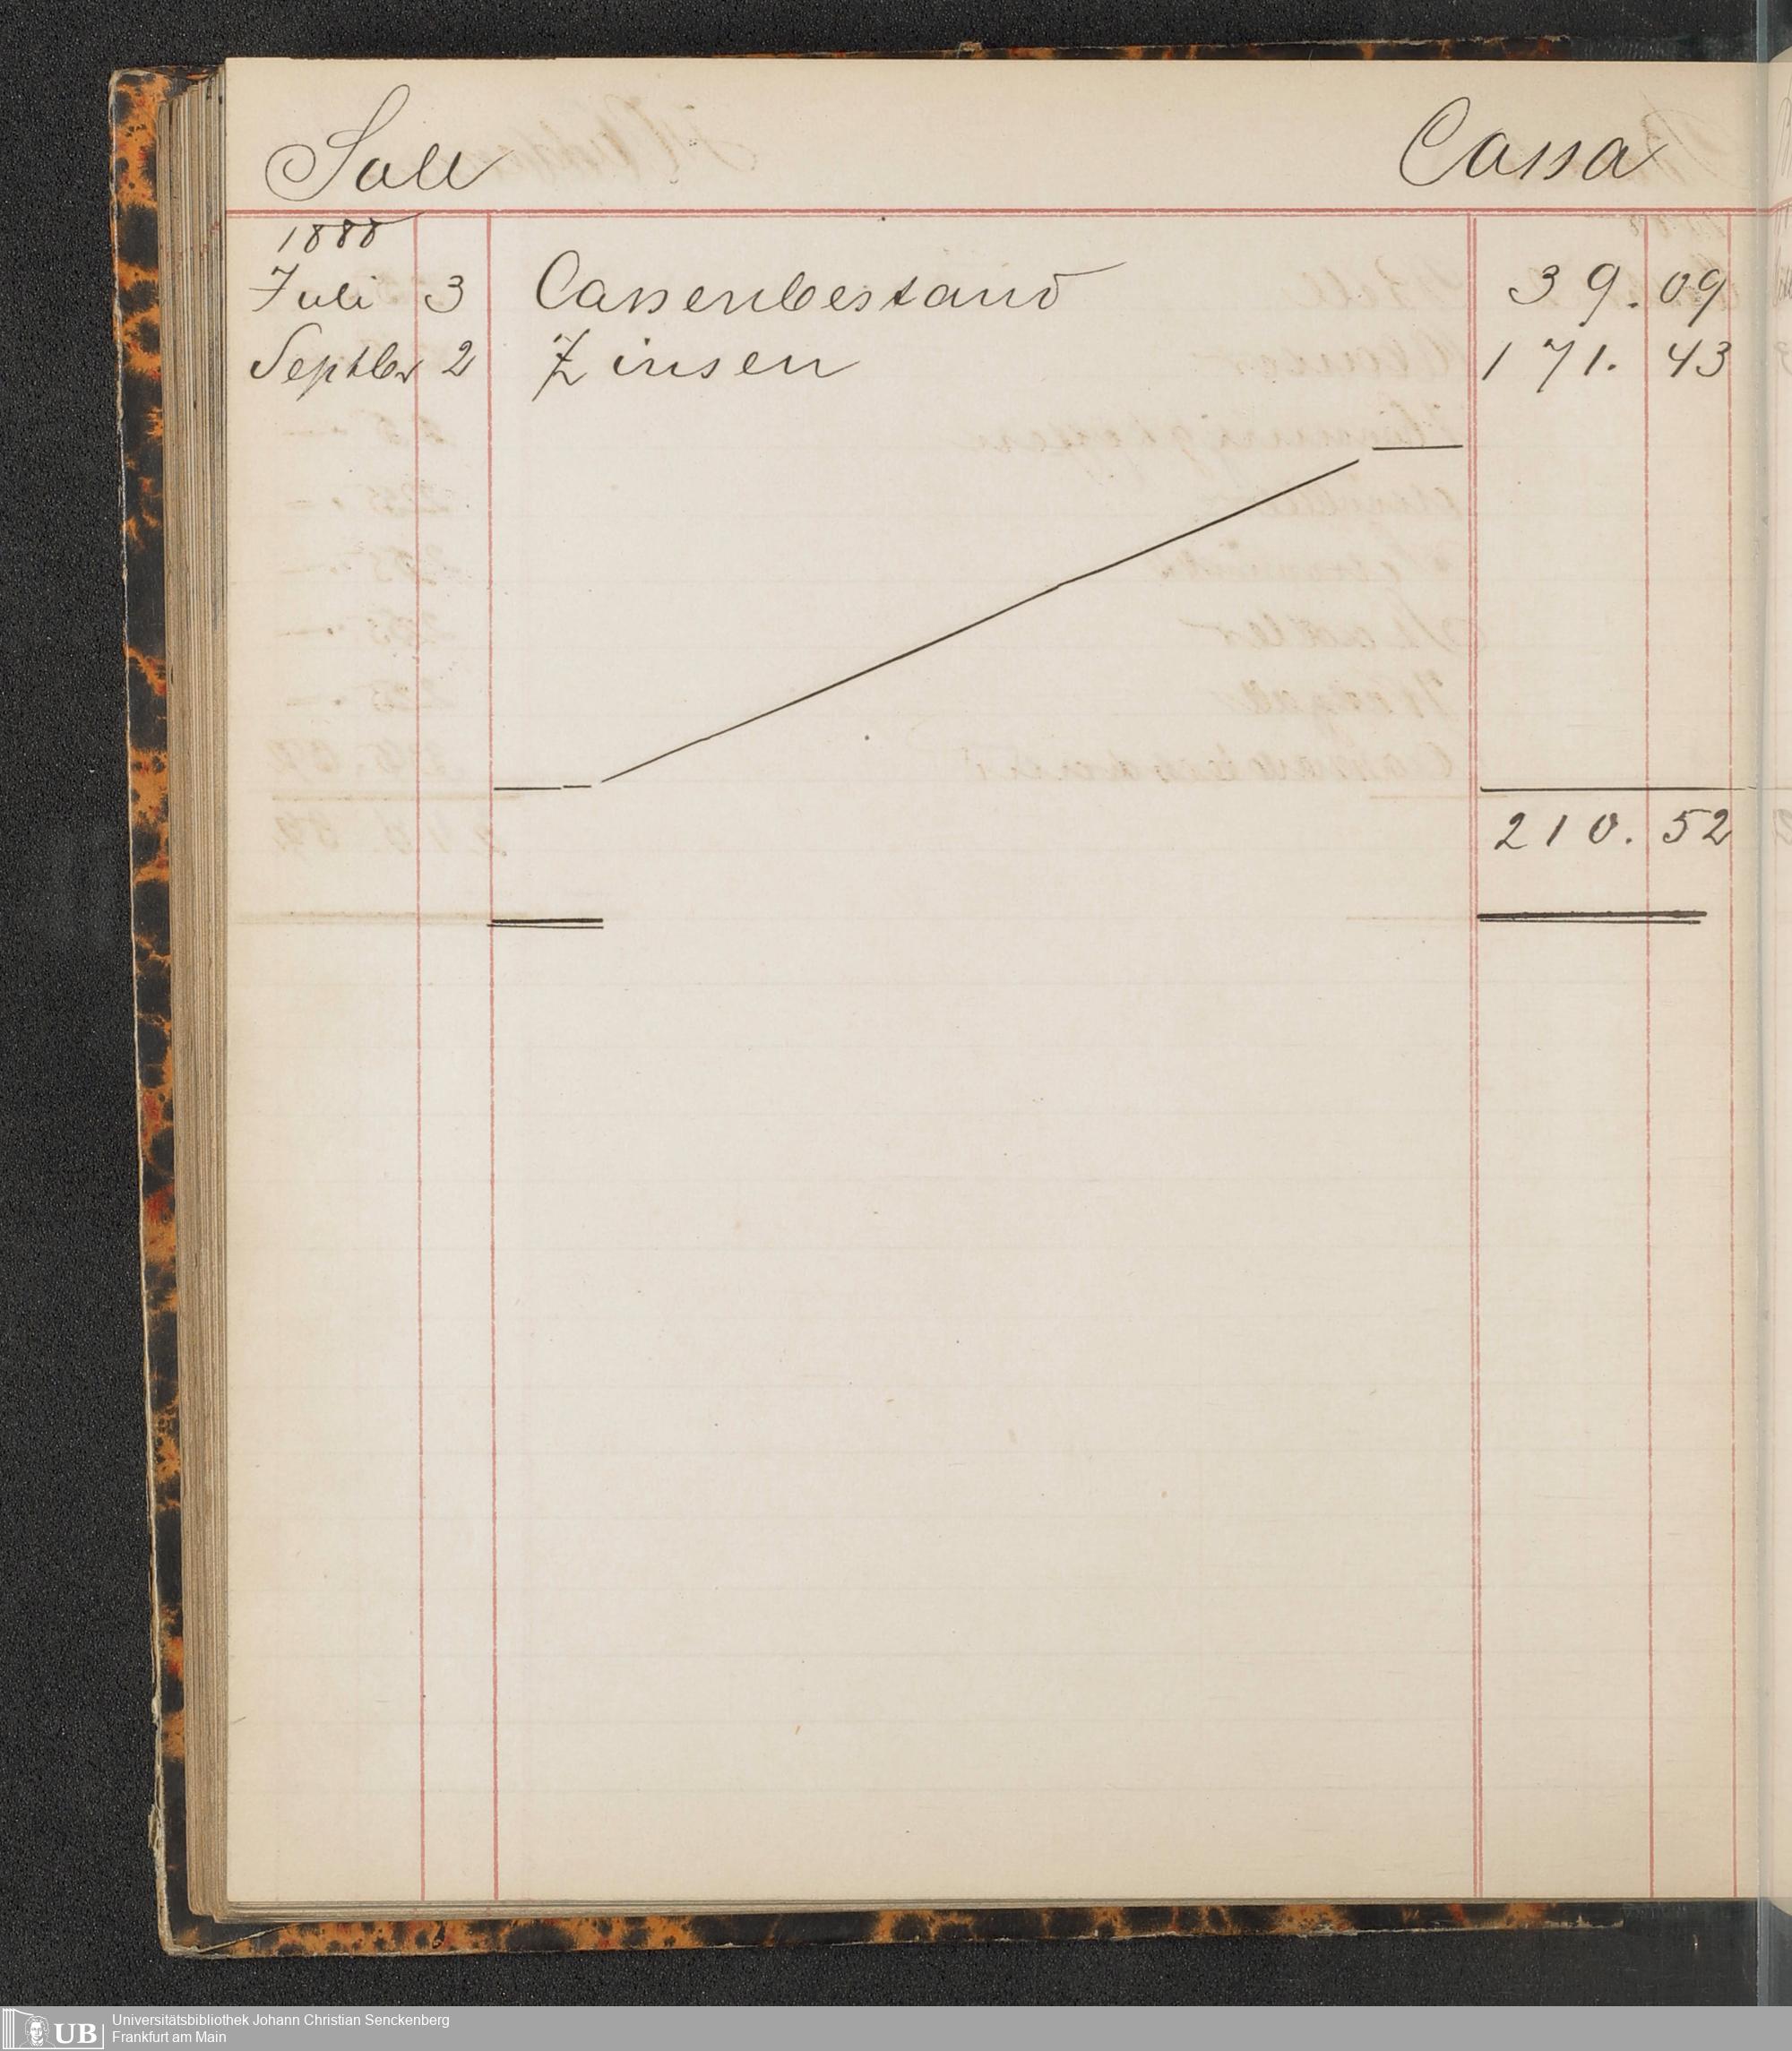 Soll Cassa
1888
Juli 3 Cassenbestand 39. 09
Septbr 2 Zinsen 171. 43
210. 52
UB
Universitätsbibliothek Johann Christian Senckenberg
Frankfurt am Main